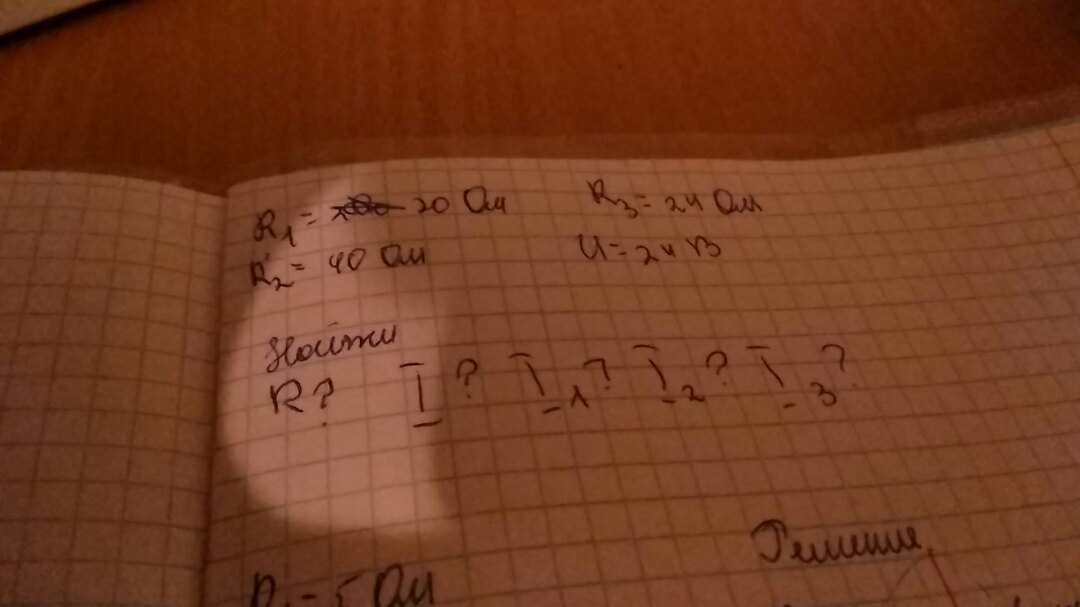 R₁ = 20 Ом R₃ = 24 Ом
R₂ = 40 Ом U = 24 В
Найти
R? I? I₁? I₂? I₃?
Решение
R₁ = 5 Ом